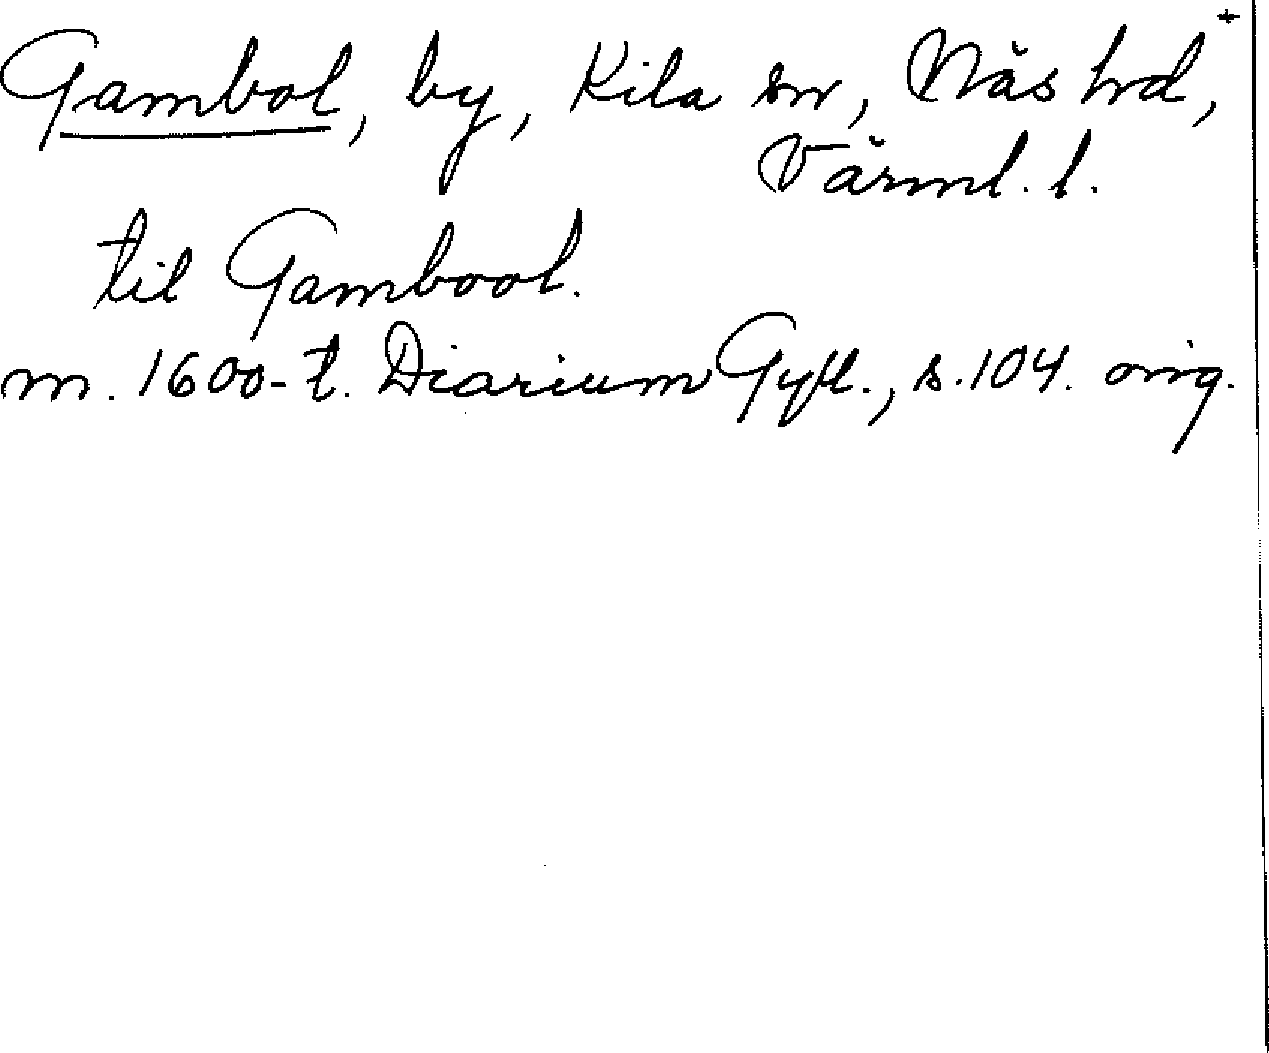 Gambol, by, Kila sn, Näs hd, +
Värml. l.
til Gambool.
m. 1600-t. Diarium Gyll., s. 104. orig.